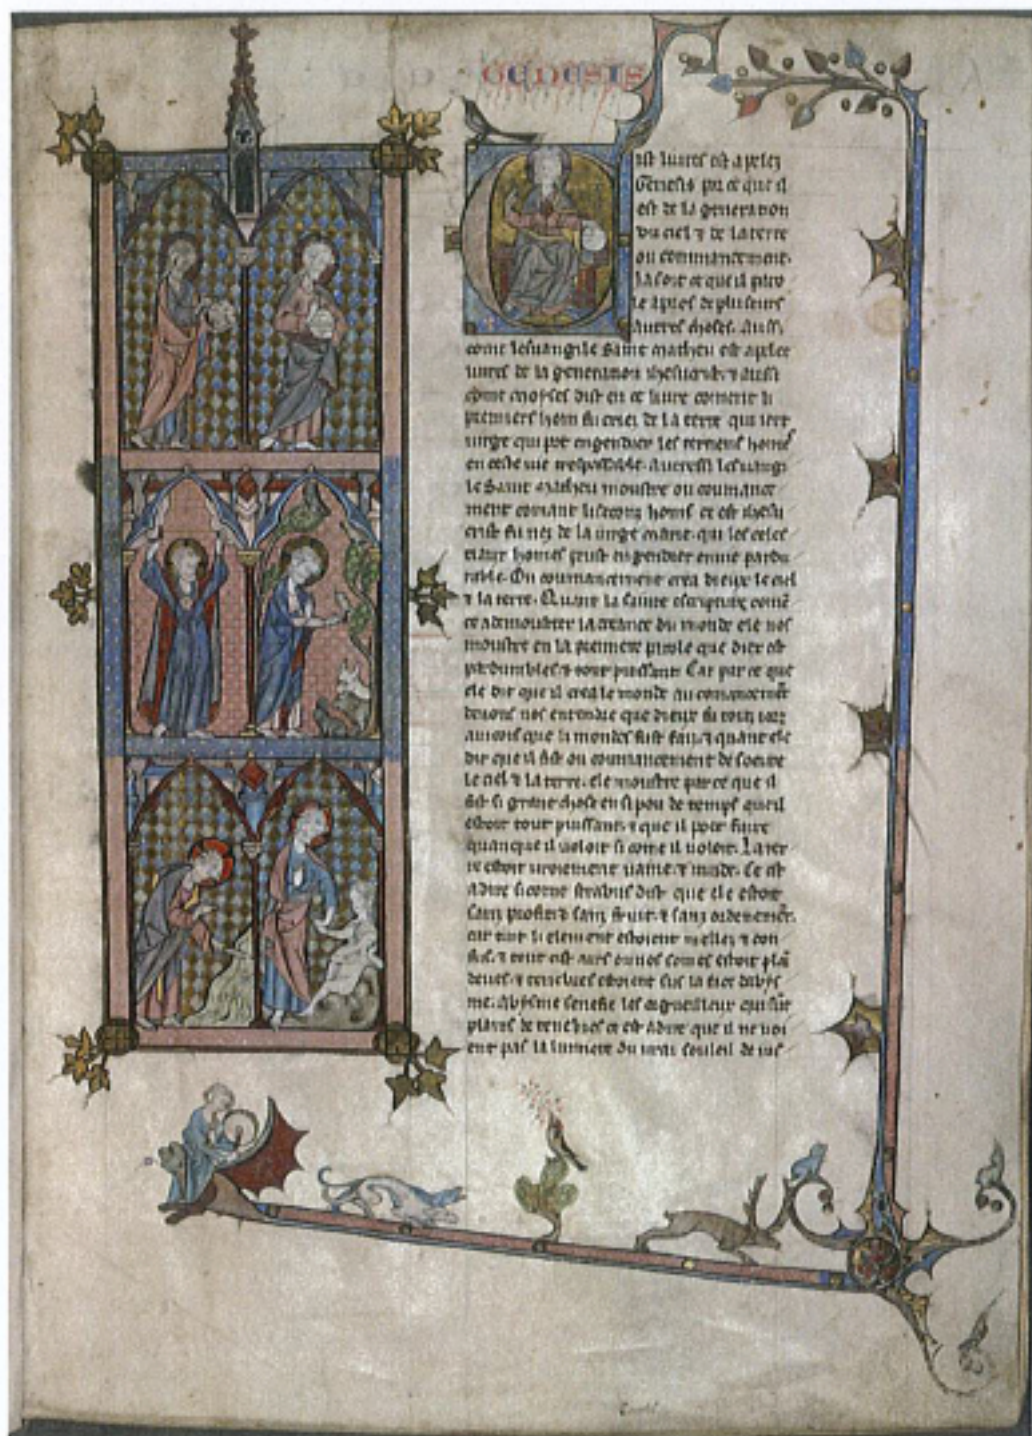 GENESIS
ist livres est apelez
Genesis por ce que il
est de la generation
du ciel ⁊ de la terre
ou commancement.
ia soit ce que il paro
le apres de pluseurs
autres choses. Aussi
come lesuangile saint matheu est apelee
liures de la generation ihesucrist. ⁊ aussi
come moyses dist en ce liure coment li
premiers hom fu criez de la terre qui iert
uirge qui pot engendrer les terriens homes
en ceste uie trespassable. lesuangi
le saint matheu moustre ou coumance
ment comant li secons homs ce est ihesu
crist fu nez de la uirge marie. qui les celes
tiaux homes peust engendrer en uie pardu
rable. Ou coumancement crea dieux le ciel
⁊ la terre. Quant la sainte escripture comē
ce a demoustrer la creance du monde ele nos
moustre en la premiere parole que diex est
pardurables ⁊ tout puissant. Car par ce que
ele dit que il crea le monde au comancemēt
deuons nos entendre que dieux fu touz iorz
aincois que li mondes fust faiz. ⁊ quant ele
dit que il fist ou coumancement de l'oeure
le ciel ⁊ la terre. ele moustre par ce que il
fist si grant chose en si pou de temps que il
estoit tout puissant. ⁊ que il poet faire
quanque il uoloit si come il uoloit. La ter
re estoit uraiement uaine. ⁊ uuide. Ce est
a dire si come strabus dist que ele estoit
sanz profit ⁊ sanz fruit. ⁊ sanz ordenemēt.
car tuit li element estoient mellez ⁊ con
fus.
⁊ tenebres estoient sus la face dabys
me. Abysme senefie les orgueilleux qui sūt
plains de tenebres ce est a dire que il ne uoi
ent pas la lumiere du urai souleil de ius